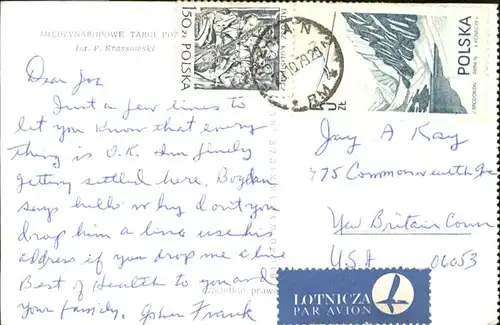 MIĘDZYNARODOWE TARGI POZ
fot. P. Krassowski
Dear Joe
Just a few lines to
let you know that every
thing is O.K. Im finely
getting settled here. Bogdan
says hello why dont you
drop him a line use his
address if you drop me a line
Best of Health to you and
your family. Frank
150 ZŁ POLSKA
POLSKA
ZŁ
Jay A Kay
475 Commonwealth Ave
New Britain Conn
USA 06053
LOTNICZA
PAR AVION